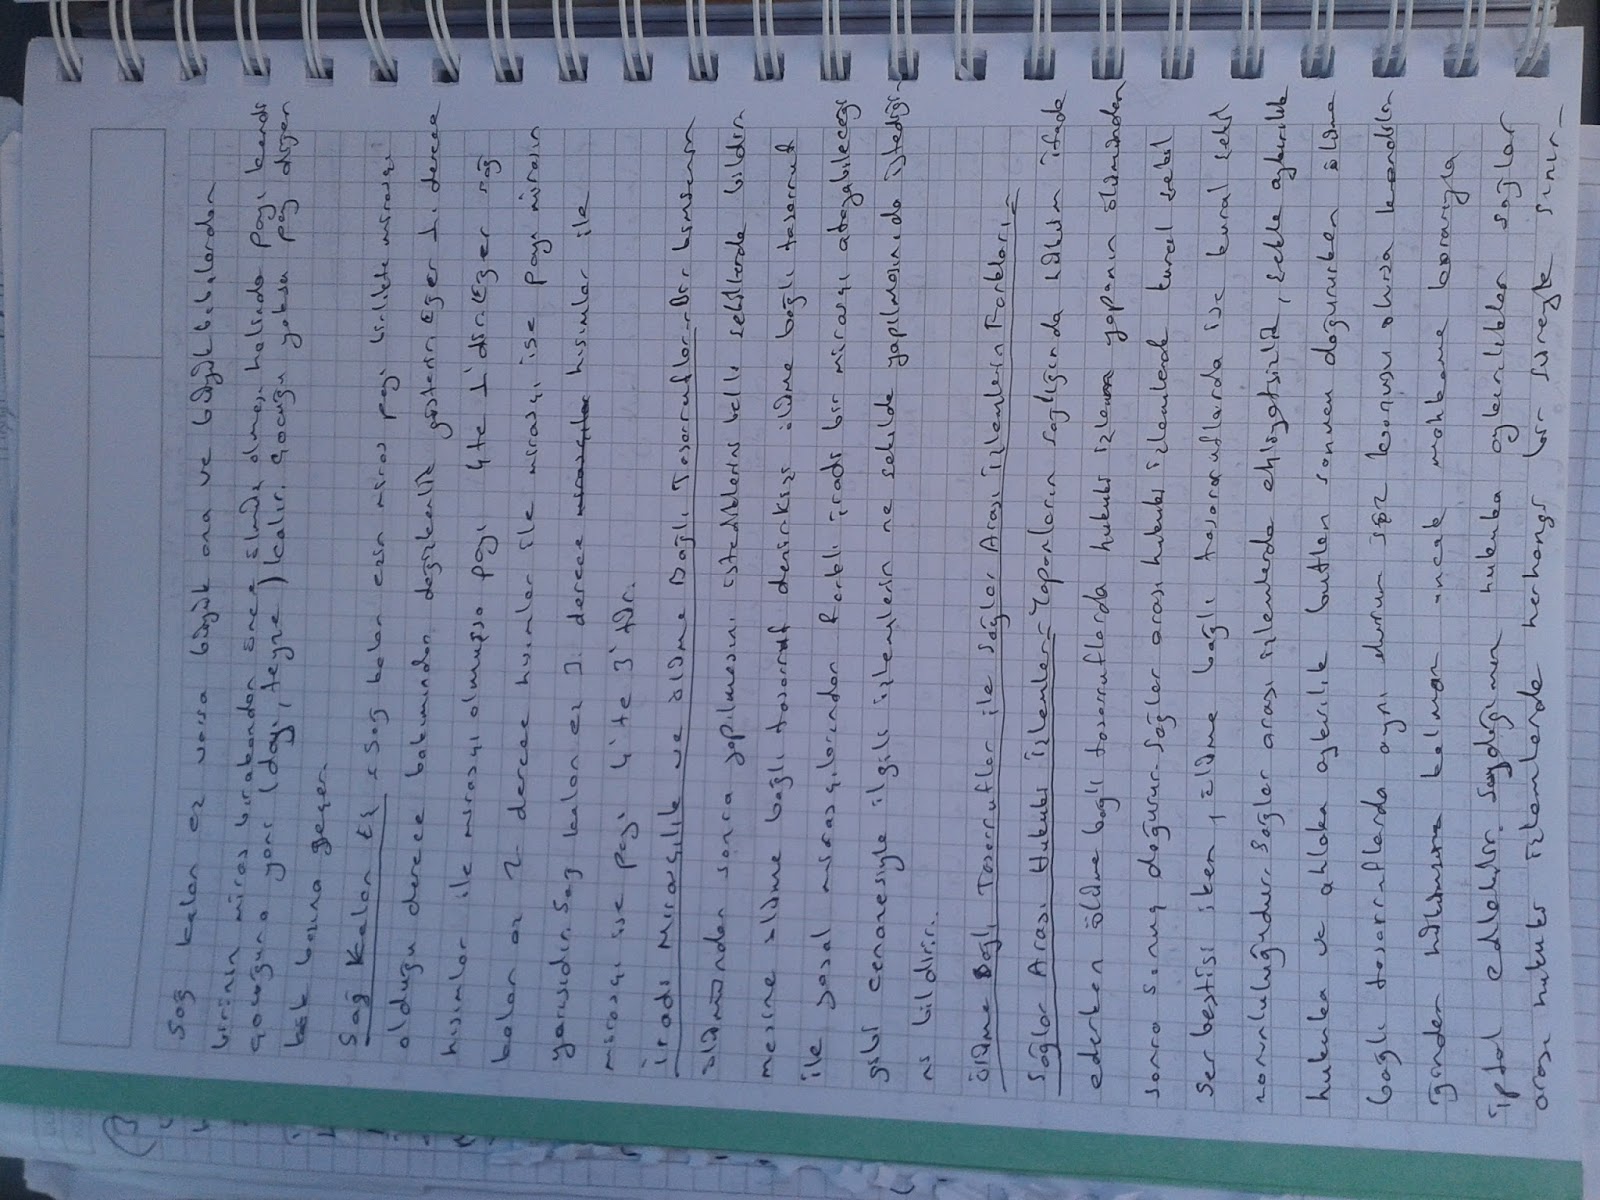 Sağ kalan eş varsa büyük ana ve büyük babalardan
birinin miras bırakandan önce ölmüş olması halinde payı kendi
çocuğuna yani (dayı, teyze) kalır. Çocuğu yoksa pay diğer
başına geçer.
Sağ Kalan Eş : Sağ kalan eşin miras payı birlikte mirasçı
olduğu derece bakımından değişkenlik gösterir. Eğer 1. derece
hısımlar ile mirasçı olmuşsa payı 4te 1'dir. Eğer sağ
kalan eş 2. derece hısımlar ile mirasçı ise payı mirasın
yarısıdır. Sağ kalan eş 3. derece hısımlar ile
mirasçı ise payı 4'te 3'tür.
İradi Mirasçılık ve Ölüme Bağlı Tasarruflar: Bir kimsenin
ölümünden sonra yapılmasını istediklerini belli şekillerde bildir
mesine ölüme bağlı tasarruf denir. Kişi ölüme bağlı tasarruf
ile yasal mirasçılarından farklı iradi bir mirasçı atayabileceği
gibi cenazesiyle ilgili işlemlerin ne şekilde yapılmasınıda istediği-
ni bildirir.
Ölüme Bağlı Tasarruflar ile Sağlar Arası İşlemlerin Farkları:
Sağlar Arası Hukuki İşlemler: Yapanların sağlığında hüküm ifade
ederken ölüme bağlı tasarruflarda hukuki işlem yapanın ölümünden
sonra sonuç doğurur. Sağlar arası hukuki işlemlerde kural şekil
Serbestisi iken ; ölüme bağlı tasarruflarda ise kural şekil
zorunluluğudur. Sağlar arası işlemlerde ehliyetsizlik, şekle aykırılık
hukuka ve ahlaka aykırılık butlan sonucu doğururken ölüme
bağlı tasarruflarda aynı durum söz konusu olursa kendiliğin
iptal edilebilir. Saydığımız hukuka aykırılıklar sağlar
arası hukuki işlemlerde herhangi bir süreyle sınır-